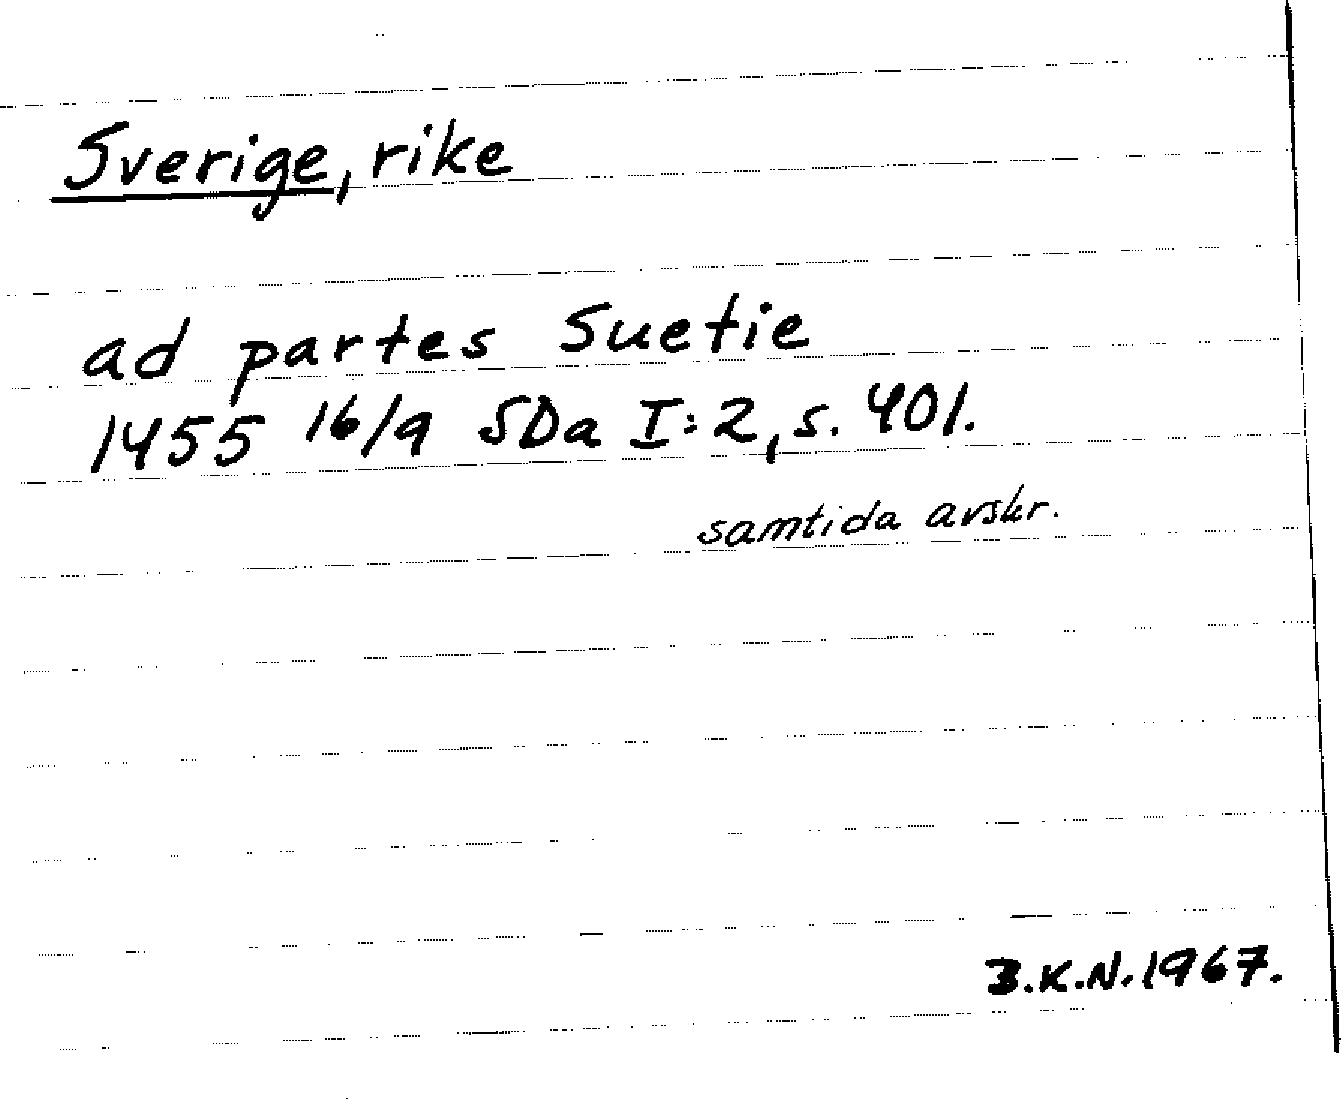 Sverige, rike
ad partes Suetie
1455 16/9 SDa I:2, s. 401.
samtida avskr.
B.K.N. 1967.